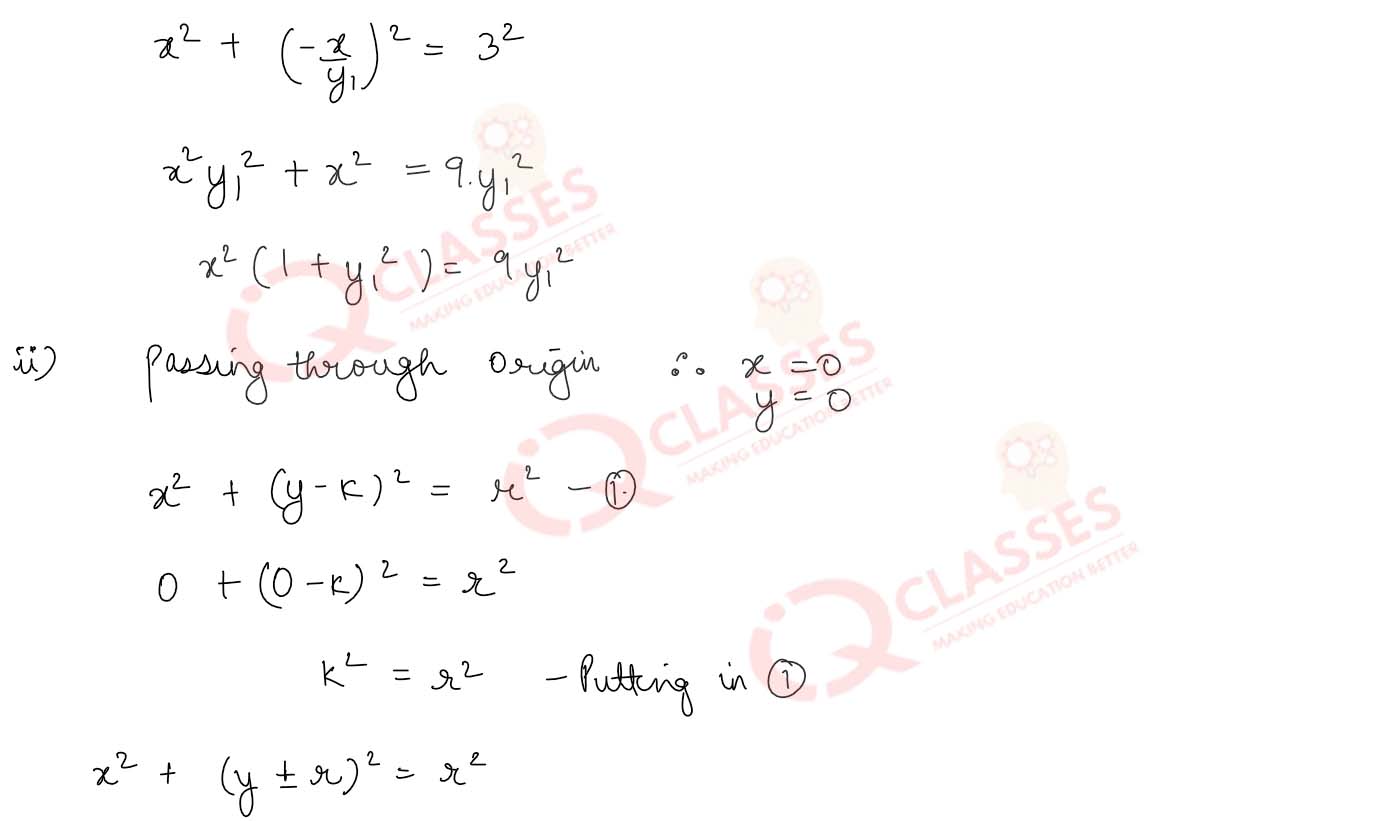 x² + (-x/y₁)² = 3²
x²y₁² + x² = 9.y₁²
x²(1 + y₁²) = 9y₁²
ii) Passing through origin ∴ x = 0
y = 0
x² + (y-k)² = r² - ①
0 + (0-k)² = r²
k² = r² - Putting in ①
x² + (y ± r)² = r²
iQ CLASSES
MAKING EDUCATION BETTER
iQ CLASSES
MAKING EDUCATION BETTER
iQ CLASSES
MAKING EDUCATION BETTER